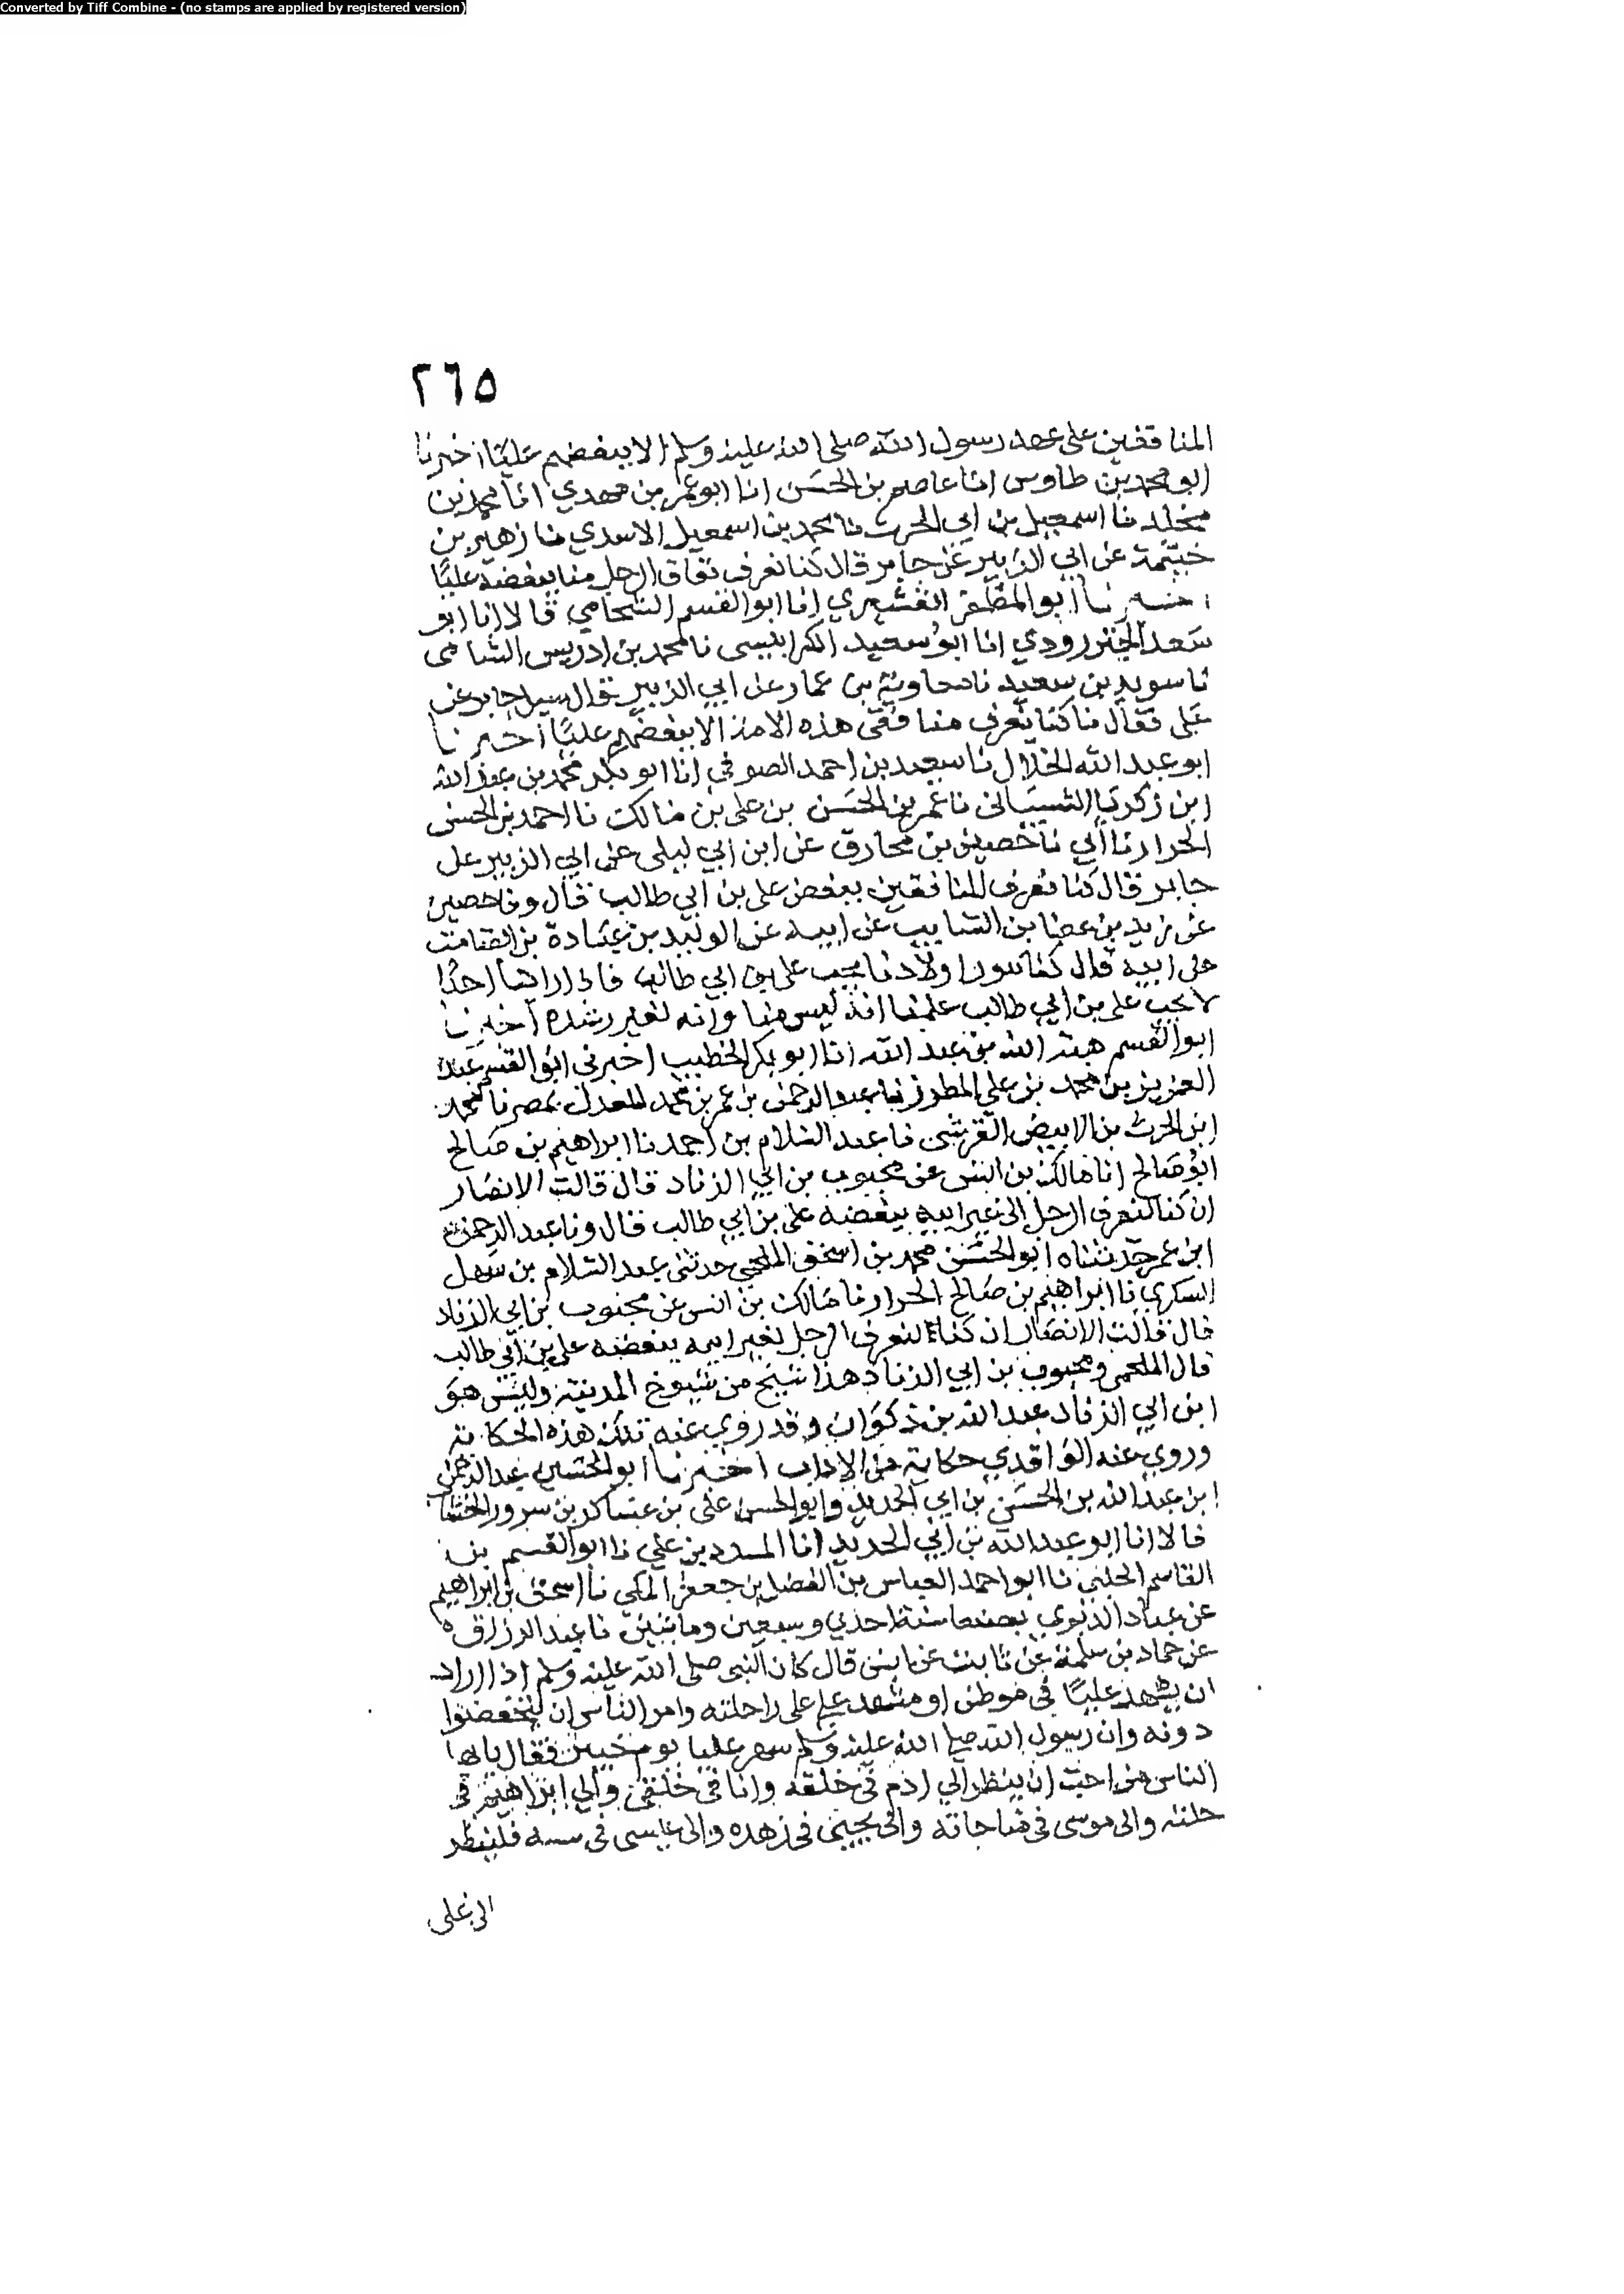 Converted by Tiff Combine - (no stamps are applied by registered version)
٢٦٥
المنافقين على عهد رسول الله صلى الله عليه وسلم الا ببغضهم عليا اخبرنا
ابو محمد بن طاوس انا عاصم بن الحسن انا ابو عمر بن مهدي انا محمد بن
مخلد نا اسمعيل بن ابي الحرث نا محمد بن اسمعيل الاسدي نا زهير بن
خيثمة عن ابي الزبير عن جابر قال كنا نعرف نفاق الرجل منا ببغضه عليا
اخبرنا ابو المظفر القشيري انا ابو القسم الشحامي قالا انا ابو
سعد الجنزرودي انا ابو سعيد الكرابيسي نا محمد بن ادريس الشامي
نا سويد بن سعيد نا معاوية بن عمار عن ابي الزبير قال سيل جابر عن
على فقال ما كنا نعرف منافقي هذه الامة الا ببغضهم عليا اخبرنا
ابو عبد الله الخلال نا سعيد بن احمد الصوفي انا ابو بكر محمد بن عبد الله
ابن زكريا الشيباني نا عمر بن الحسن بن علي بن مالك نا احمد بن الحسن
الحرار نا أبي نا حصين بن مخارق عن ابن ابي ليلى عن ابي الزبير عن
جابر قال كنا نعرف المنافقين ببغض على بن ابي طالب قال ونا حصين
عن زيد بن عطا بن السايب عن ابيه عن الوليد بن عبادة بن الصامت
عن ابيه قال كنا اولادنا بحب على بن ابي طالب فاذا راينا احدا
لا يحب على بن ابي طالب علمنا انه ليس منا وانه لغير رشده اخبرنا
ابو القسم هبة الله بن عبد الله انا ابو بكر الخطيب اخبرني ابو القسم عبد
العزيز بن محمد بن علي المطرز نا عبد الرحمن بن عمر بن محمد المعدل بمصر نا محمد
ابن الحرث بن الابيض القرشي نا عبد السلام بن احمد نا ابراهيم بن صالح
ابو صالح انا مالك بن انس عن محبوب بن ابي الزناد قال قالت الانصار
ان كنا لنعرف الرجل الى غير ابيه ببغضه على بن ابي طالب قال ونا عبد الرحمن
ابن عمر حدثناه ابو الحسن محمد بن اسحق الملحمي حدثني عبد السلام بن سهل
السكري نا ابراهيم بن صالح الحرار نا مالك بن انس عن محبوب بن ابي الزناد
قال قالت الانصار ان كنا لنعرف الرجل لغير ابيه ببغضه على بن ابي طالب
قال الملحمي ومحبوب بن ابي الزناد هذا شيخ من شيوخ المدينة وليس هو
ابن ابي الزناد عبد الله بن ذكوان وقد روي عنه تلك هذه الحكاية
وروي عنه الواقدي حكاية من الاداب اخبرنا ابو الحسين عبد الرحمن
ابن عبد الله بن الحسن بن ابي الحديد وابو الحسن على بن عساكر بن سرور الخشاب
قالا انا ابو عبد الله بن ابي الحديد انا المسدد بن علي نا ابو القسم بن
القاسم الحلبي نا ابو احمد العباس بن الفضل بن جعفر المكي نا اسحق بن ابراهيم
عن عباد الدبري بصنعا سنة احدي وسبعين وماتين نا عبد الرزاق
عن حماد بن سلمة عن ثابت عن انس قال كان النبي صلى الله عليه وسلم اذا اراد
ان يشهد عليا في موطن او مشهد على راحلته وامر الناس ان ينخفضوا
دونه وان رسول الله صلى الله عليه وسلم شهر عليا يوم خيبر فقال يا ايها
الناس من احب ان ينظر الي ادم في خلقه وانا في خلقي والي ابراهيم في
خلته والى موسى في مناجاته والى يحيى في زهده والى عيسى في سنه فلينظر
الى على